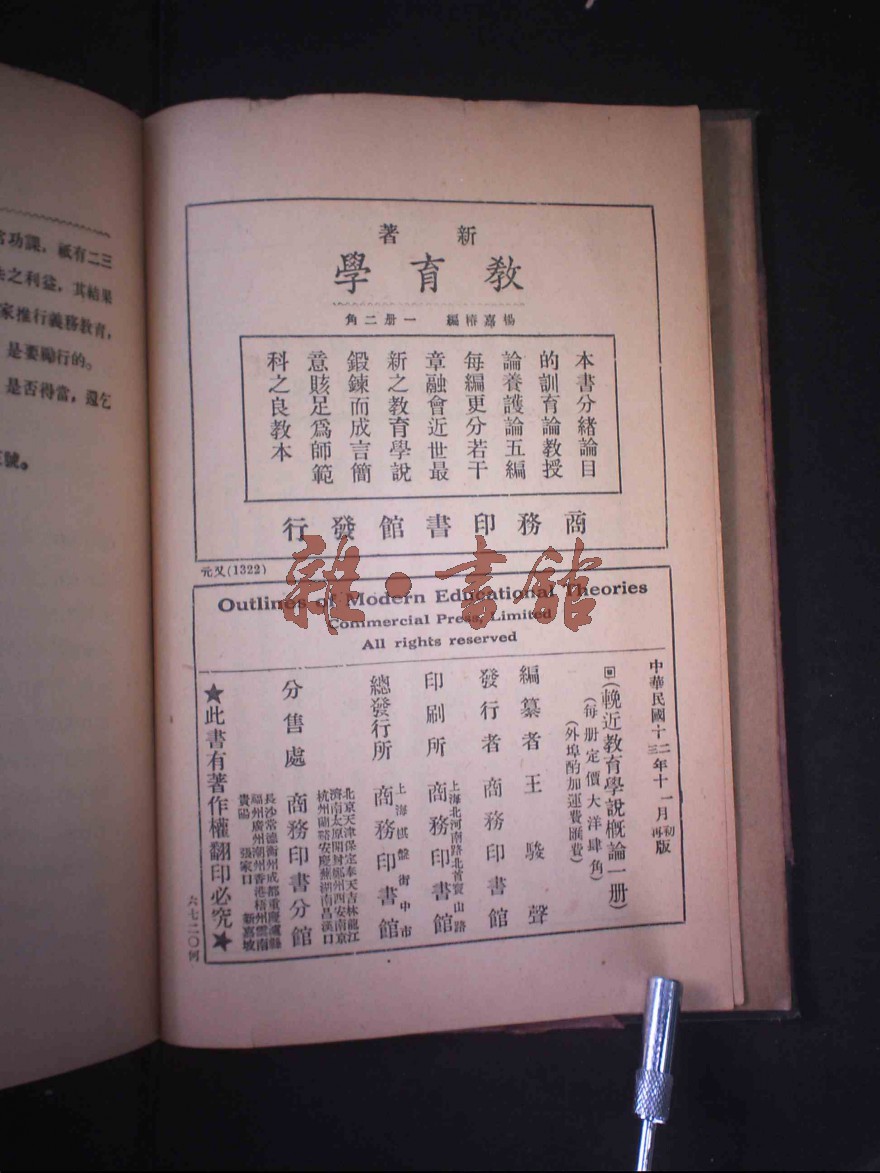 官功課，祇有二三
法之利益，其結果
家推行義務教育，
是要勵行的。
是否得當，還乞
號。
新著
教育學
楊嘉椿編 一册二角
本書分緒論目
的訓育論教授
論養護論五編
每編更分若干
章融會近世最
新之教育學說
鍛鍊而成言簡
意賅足爲師範
科之良教本
商務印書館發行
元又(1322)
雜·書館
Outlines of Modern Educational Theories
Commercial Press, Limited
All rights reserved
中華民國十二年十一月初版
三 再
(輓近教育學說概論一册)
(每册定價大洋肆角)
(外埠酌加運費匯費)
編纂者 王駿聲
發行者 商務印書館
印刷所 上海北河南路北首寶山路 商務印書館
總發行所 上海棋盤街中市 商務印書館
分售處 商務印書分館
北京天津保定奉天吉林龍江
濟南太原開封鄭州西安南京
杭州蘭谿安慶蕪湖南昌漢口
長沙常德衡州成都重慶瀘縣
福州廣州潮州香港梧州雲南
貴陽 張家口 新嘉坡
★此書有著作權翻印必究★
六七二〇何